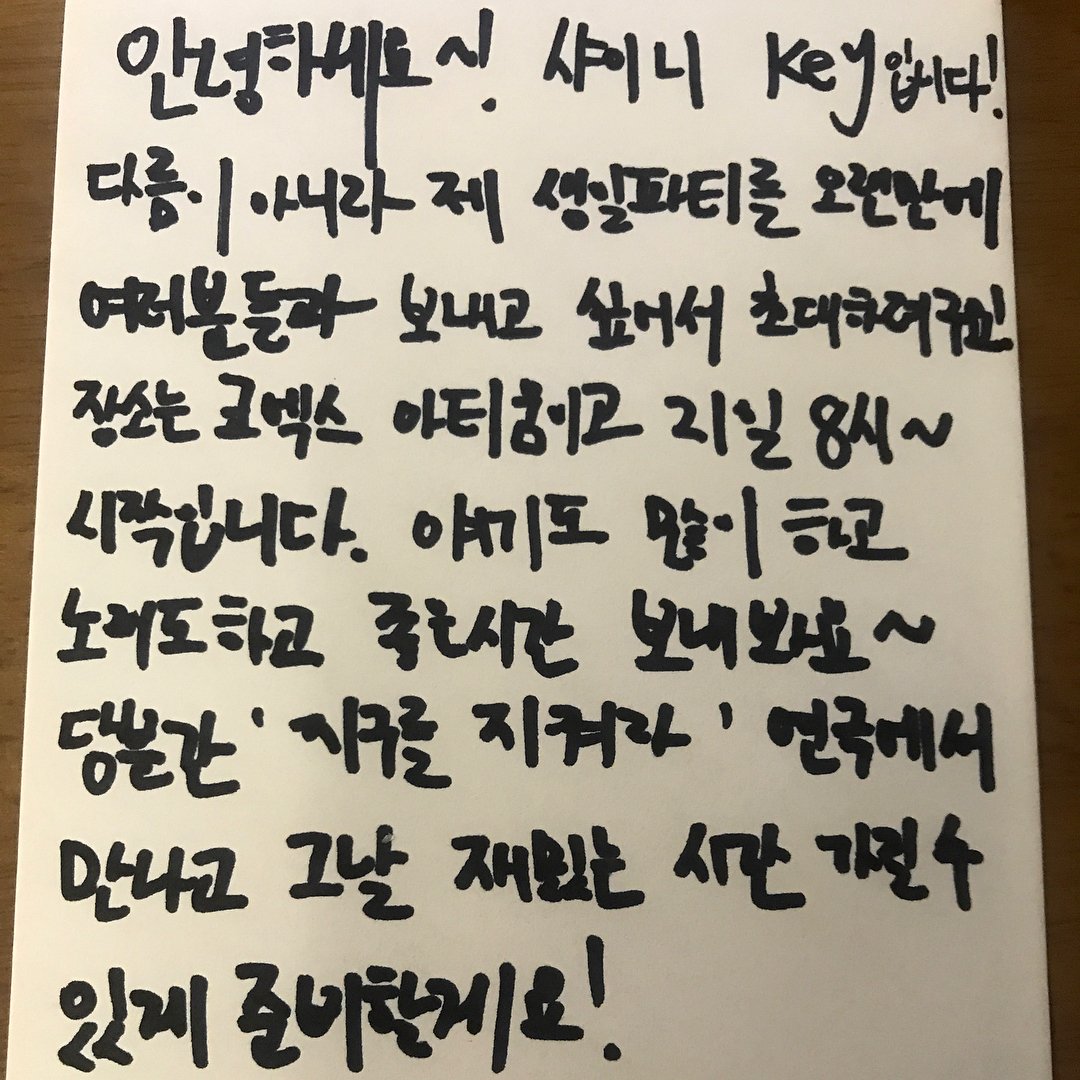 안녕하세요~! 샤이니 Key입니다!
다름이 아니라 제 생일파티를 오랜만에
여러분들과 보내고 싶어서 초대하려구요!
장소는 코엑스 아티움이고 지일 8시~
시작입니다. 얘기도 많이 하고
노래도하고 죽은시간 보내봐요~
당분간 '지구를 지켜라' 연극에서
만나고 그날 재밌는 시간 가질 수
있게 준비할게요!